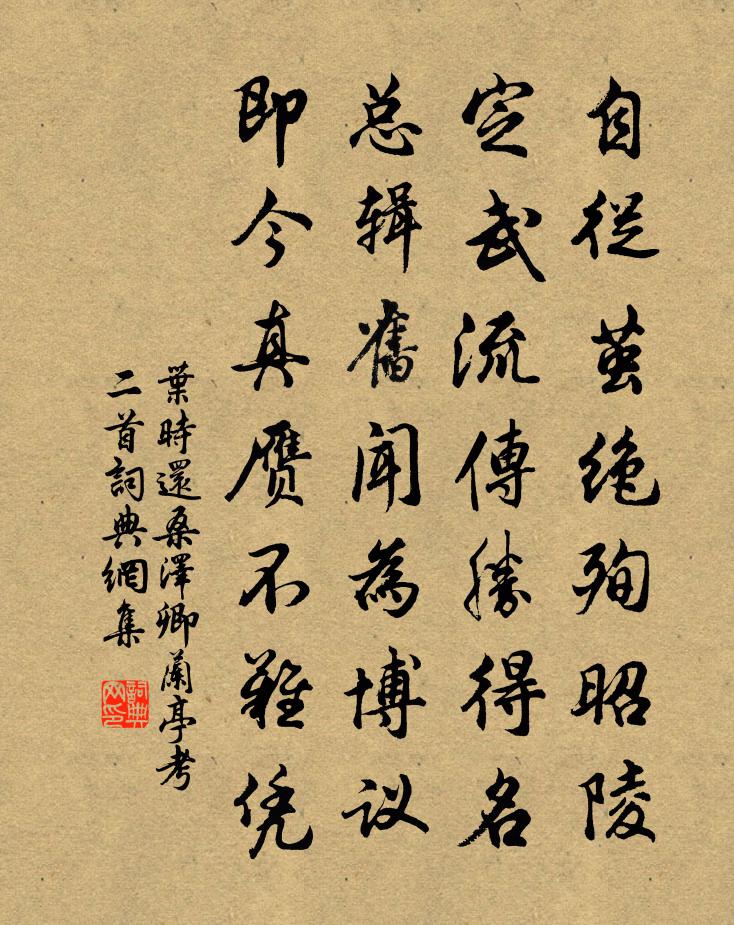 自從茧绝殉昭陵
定武流傳勝得名
总辑舊闻為博议
即今真赝不難凭
葉時還桑澤卿蘭亭考
二首詞典網集
詞典网印